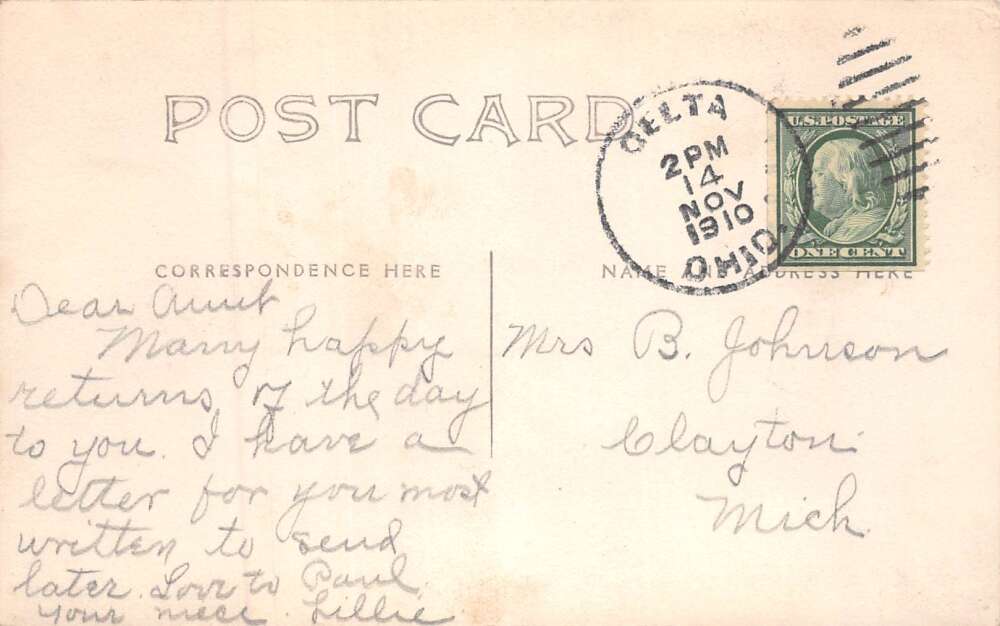 POST CARD
DELTA
2 PM
14
NOV
1910
OHIO.
U.S. POSTAGE
ONE CENT
CORRESPONDENCE HERE
NAME AND ADDRESS HERE
Dear Aunt
Many happy
returns of the day
to you. I have a
letter for you most
written to send
later. Love to Paul.
Your niece. Lillie
Mrs B. Johnson
Clayton
Mich.